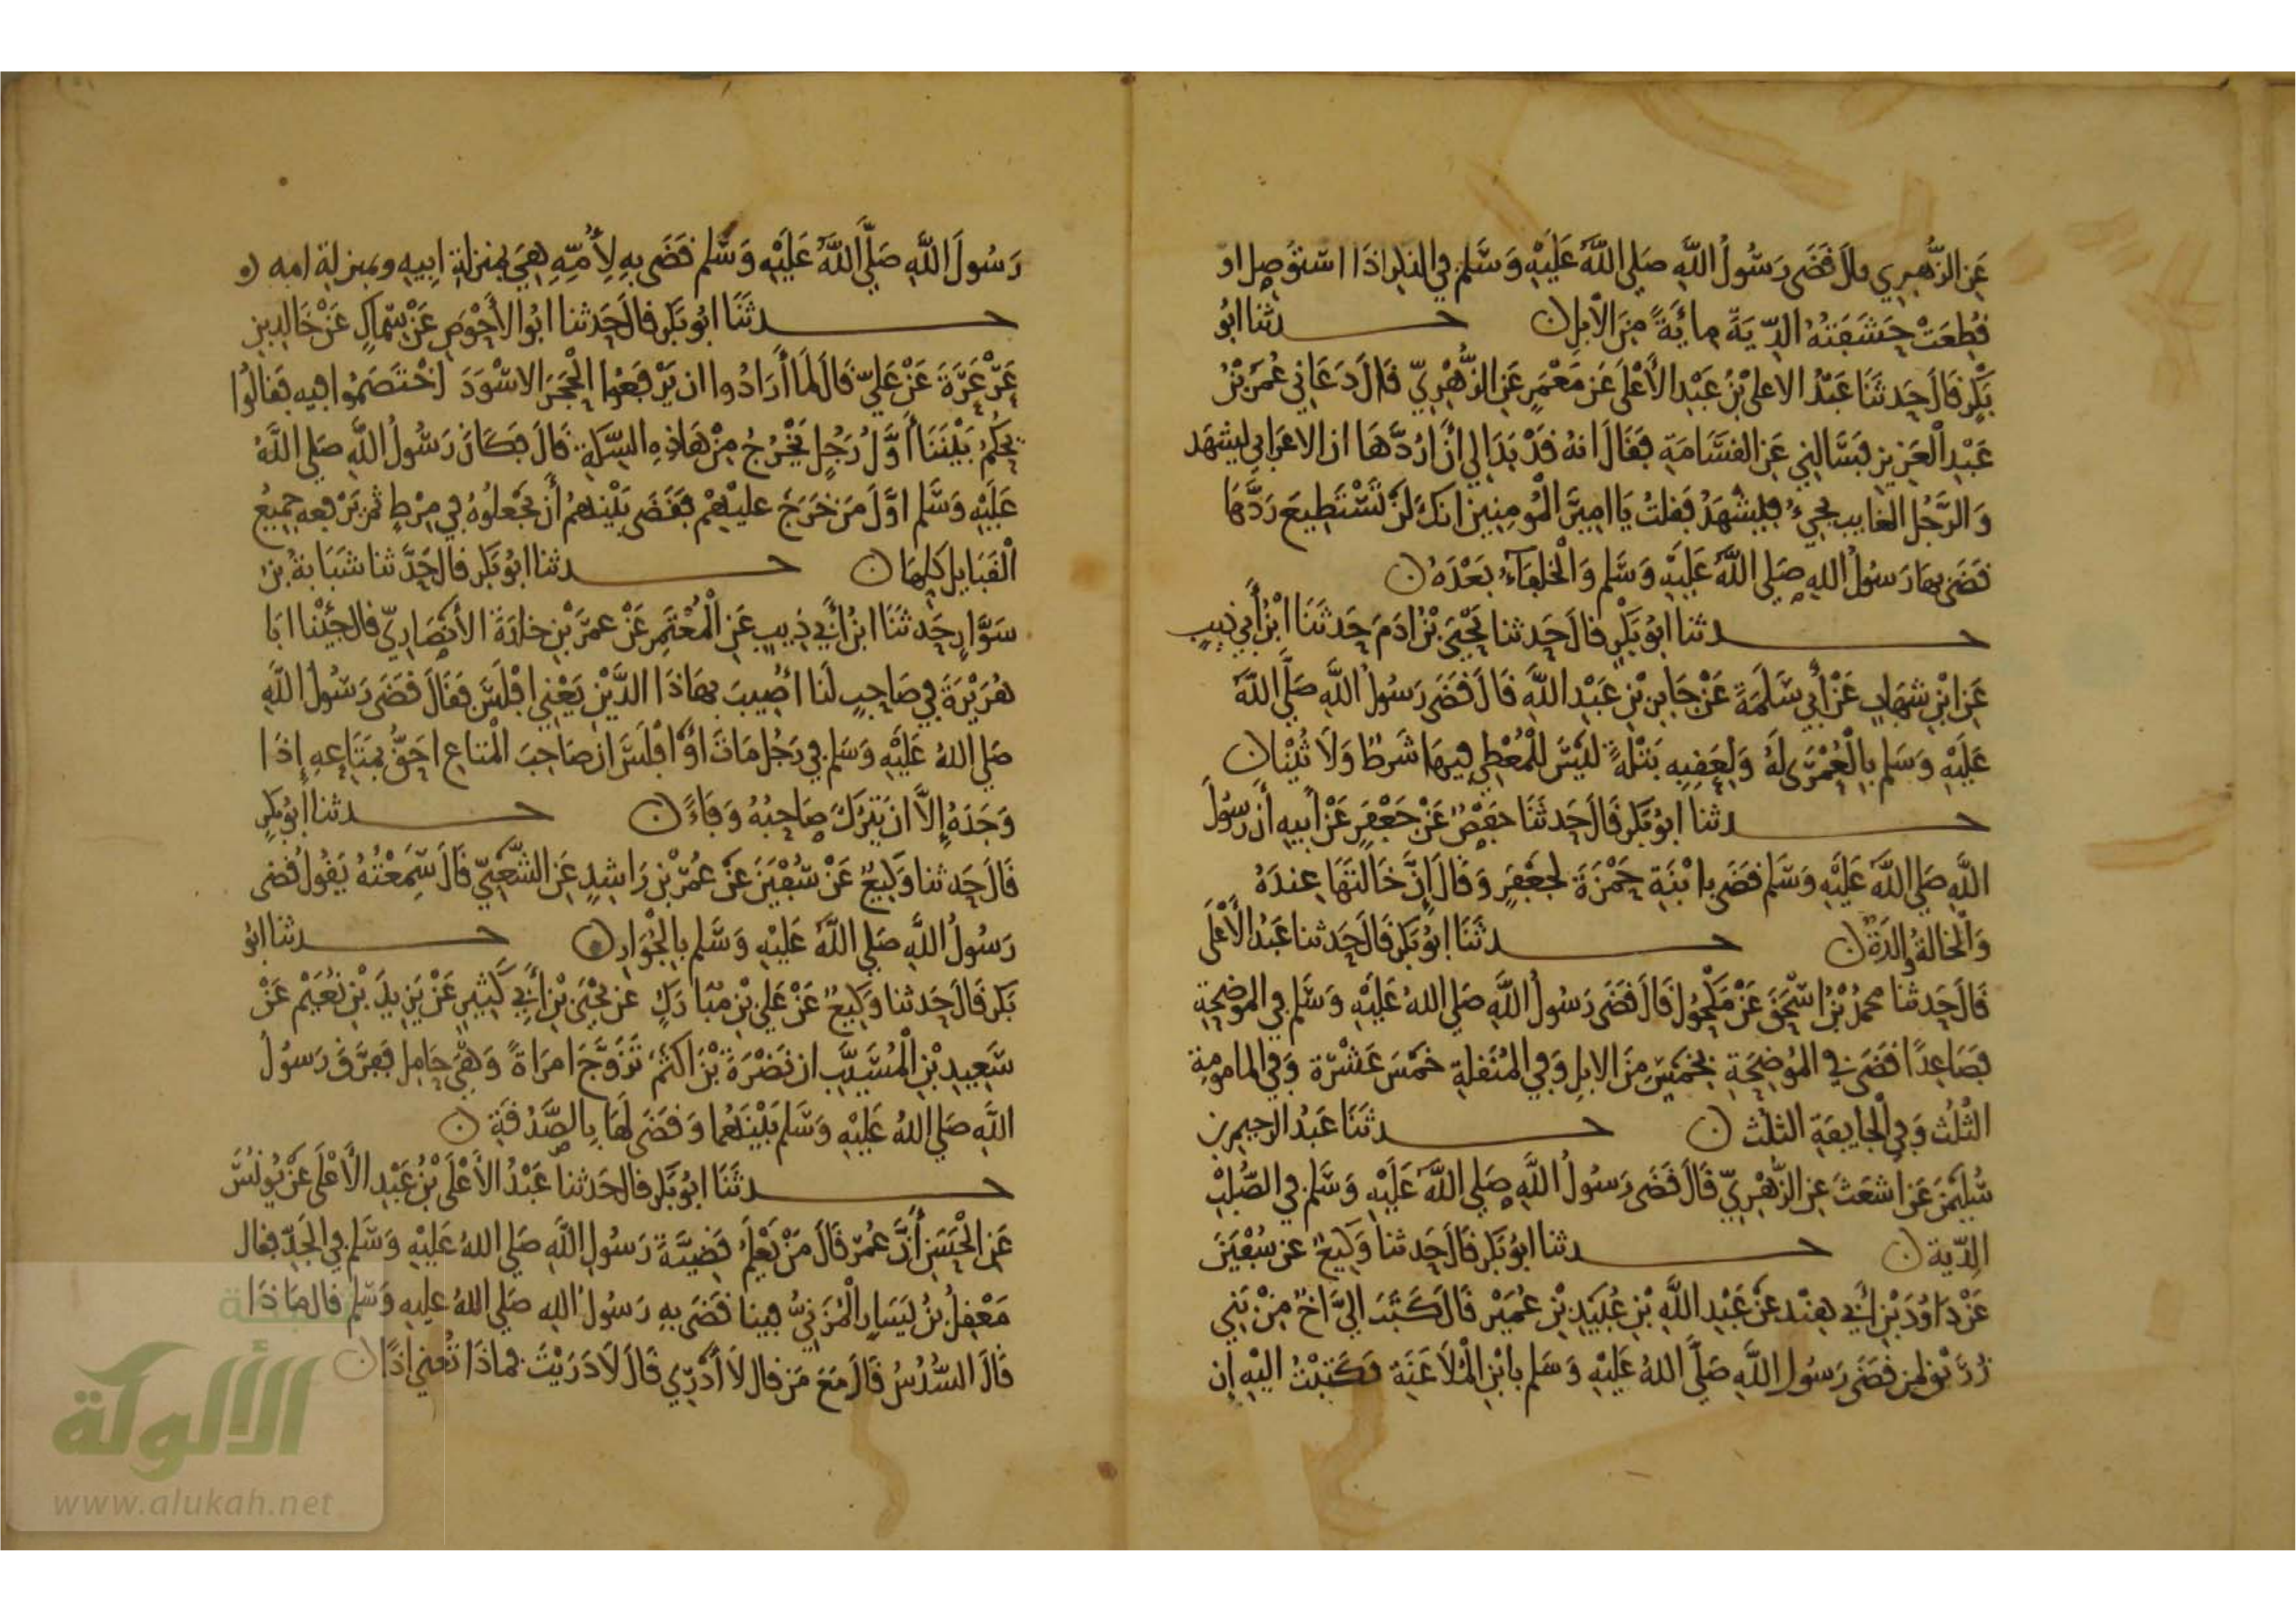 عَنِ الزُّهْرِي قالَ قَضَى رَسُولُ اللَّهِ صَلى اللَّهُ عَلَيْهِ وَسَّلم في الذكر اذَا اسْتؤصِل او
قُطِعَتْ حَشَفَتُهُ الدِّيَةَ مِائَةً مِنَ الاْبِلِ ن حـدثنا ابُو
بَكْرٍ قَالَ حَدثَنَا عَبْدُ الاعلى بْنُ عَبْدِ الأَعْلَى عَن مَعْمَرٍ عَنِ الزُّهْرِيّ قَالَ دَعَانِي عُمَرُ بْنُ
عَبْدِ الْعَزِيزِ فَسَّالنِي عَن القسَّامَةِ فَقَالَ انهُ قَدْ بَدَا لِي أنْ ارُدَّهَا ان الاعرَابي ليشهَد
وَالرَّجُل الغايب يجيءُ فليشْهَدُ فَقلتُ يَا امِيرَ الْمُومِنِينَ انكَ لَنْ تَسْتَطِيعَ رَدَّهَا
قَضَى بهَا رَسُولُ اللهِ صَلى اللَّهُ عَلَيْهِ وَسَّلم وَالْخلفَاءُ بَعْدَهُ ن
حـدثنا ابُو بَكْرٍ قالَ حَدثنا يَحْيَى بْنُ ادَمَ حَدثَنَا ابْنُ أَبي ذيب
عَنِ ابْنِ شِهَابٍ عَنْ أَبي سَّلَمَةَ عَنْ جَابِرِ بْنِ عَبْدِ اللَّهِ قَالَ قَضَى رَسُولُ اللَّهِ صَلَّى اللَّهُ
عَلَيْهِ وَسَّلم بِالْعُمْرَى لَهُ وَلِعَقِبِهِ بَتْلَةً لَيْسَ للْمُعْطِي فِيهَا شَرطٌ وَلَا ثُنْيَا ن
حـدثنا ابُو بَكْرٍ قَالَ حَدثَنَا حَفْصٌ عَنْ جَعْفَرٍ عَنْ أَبِيهِ أَنَّ رَسُولَ
اللَّهِ صَلى اللَّهُ عَلَيْهِ وَسَّلم قَضَى بابْنَةِ حَمْزَةَ لجَعْفَرٍ وَقَالَ إِنَّ خَالتَهَا عِندَهُ
وَالْخالةُ والدَةٌ ن حـدثَنَا ابُو بَكْرٍ قَالَ حَدثنا عَبْدُ الأَعْلَى
قَالَ حَدثنا محمدُ بْنُ اسْحَقَ عَنْ مَكْحُولٍ قَالَ قَضَى رَسُولُ اللَّهِ صَلى اللهُ عَلَيْهِ وَسَّلم في الموضِحَةِ
فصَاعِدًا قَضَى فِي المُوضِحَةِ بِخَمْسٍ مِنَ الابِلِ وَفِي المُنَقلةِ خَمْسَ عَشْرَة وَفِي المامومةِ
الثُلُثَ وَفِي الْجَايِفَةِ الثلُث ن حـدثَنَا عَبْدُ الرحِيمِ بن
سُّلَيْمَنَ عَن اشعَثَ عَنِ الزُّهْرِيّ قَالَ قَضَى رَسُولُ اللَّهِ صَلى اللَّهُ عَلَيْهِ وَسَّلم في الصُّلْبِ
الدِّيَة ن حـدثنا ابُو بَكْرٍ قَالَ حَدثنا وَكِيعٌ عن سُفْيَنَ
عَنْ دَاوُدَ بْنِ أَبِي هِنْد عَنْ عَبْدِ اللَّهِ بْنِ عُبَيْدِ بْنِ عُمَيْر قَالَ كَتَبَ الِيَّ اخٌ مِنْ بَنِي
زُرَيْقٍ لمن قَضَى رَسُول اللَّهِ صَلَّى اللهُ عَلَيْهِ وَسَلم بِابْنِ الْمُلَاعَنَةِ فكَتَبْتُ اليْهِ إِن
رَسُولَ اللَّهِ صَلَّى اللَّهُ عَلَيْهِ وَسَّلم قَضَى بِهِ لِأُمِّهِ هِيَ بِمنزلةِ ابِيهِ وبمنزلة امه
حـدثَنَا ابُو بَكْرٍ قالَ حَدثنا ابُو الأَحْوَصِ عَنْ سِمَاكٍ عَنْ خَالِدِ بنِ
عَرْعَرَةَ عَنْ عَلِيّ قَالَ لَمَا أَرَادُوا ان يَرْفَعُوا الحَجَرَ الاسْوَدَ اخْتَصَمُوا فِيهِ فقالُوا
يحكمُ بَيْنَنَا أَوَّلُ رَجُلٍ يَخْرُجُ مِنْ هَاذِهِ السِّكةِ قَالَ فكَانَ رَسُّولُ اللَّهِ صَلى اللَّهُ
عَلَيْهِ وَسَّلم اوَّلَ مَن خَرَجَ عليهِمْ فقَضَى بَيْنهمُ أَن يَجْعَلُوهُ فِي مِرْطٍ ثم تَرْفعه جمِيعُ
الْقَبَايِل كلهَا ن حـدثنا ابُو بَكْرٍ قالَ حَدَّثنا شَبَابَةُ بن
سَوَّارٍ حَدثَنَا ابنُ أَبِي ذِيبٍ عَنِ الْمُعْتَمِرِ عَنْ عمَرَ بْنِ خلدَةَ الأَنصَارِيّ قال جئْنَا ابَا
هُرَيْرَةَ فِي صَاحِبٍ لَنَا اُصِيبَ بِهَاذَا الدَّيْنِ يَعْنِي افْلَسَ فَقَالَ قَضَى رَسُولُ اللَّهِ
صَلى اللهُ عَلَيْهِ وَسَلم فِي رَجُلٍ مَاتَ اوْ افْلَسَ ان صَاحِبَ الْمتاعِ احَقُّ بِمَتَاعِهِ إِذَا
وَجَدَهُ إِلَّا ان يَتْرُكَ صَاحِبُهُ وَفَاءً ن حـدثنا أبُو بَكرٍ
قَالَ حَدثنا وَكِيعٌ عَنْ سُفْيَنَ عَنْ عُمَرَ بْنِ رَاشِدٍ عَنِ الشَّعْبِيِّ قَالَ سَمِعْتُهُ يَقُولُ قَضى
رَسُولُ اللَّهِ صَلى اللَّهُ عَلَيْهِ وَسَّلم بِالْجُوَارِ حـدثنا ابُو
بَكر قَالَ حَدثنا وَكِيعٌ عَنْ عَلي بْنِ مبَارَكٍ عن يَحْيَى بْنِ أَبِي كَثِيرٍ عَنْ يَزِيدَ بْنِ نُعَيْم عَنْ
سَّعِيدِ بْنِ الْمُسَيَّبِ ان نَصْرَةَ بْنَ اكثَمَ تَزَوَّجَ امرَاةً وَهْيَ حَامِل فَفرَّقَ رَسُولُ
اللَّهِ صَلى اللهُ عَلَيْهِ وَسَّلم بَيْنَهُمَا وَقَضَى لَهَا بِالصَّدُقَةِ ن
حـدثَنَا ابُو بَكْرٍ قالَ حَدثنا عَبْدُ الأَعْلَى بْنُ عَبْدِ الأَعْلَى عَنْ يُونُسَ
عَنِ الْحَسَنِ أَنَّ عُمَرَ قَالَ مَنْ يَعْلَمُ قَضِيَّةَ رَسُولِ اللَّهِ صَلى اللهُ عَليْهِ وَسَّلم فِي الجَدِّ فقال
مَعْقِلُ بْنُ يَسَارٍ الْمُزَنِيُّ فِينا قَضَى بِهِ رَسُولُ اللهِ صَلى اللهُ عليه وَسَّلم قال مَاذَا
قَالَ السُّدُسُ قَالَ مَعَ مَن قال لَا أَدْرِي قَالَ لَا دَرَيْتَ فماذَا تُغني اذًا ن
شبكة
الألوكة
www.alukah.net